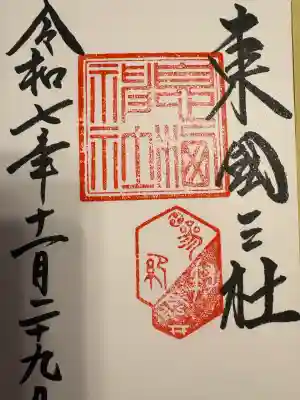 東國三社
息栖神社
令和七年十一月二十九日